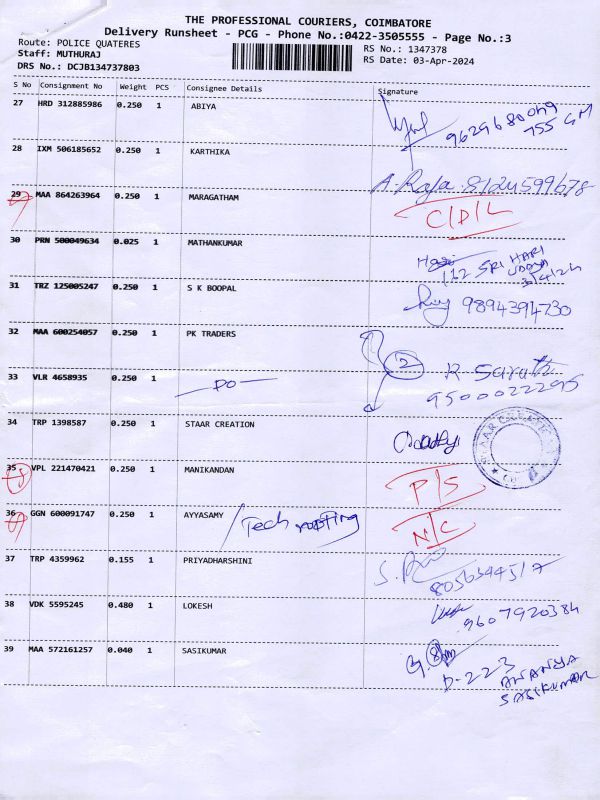 THE PROFESSIONAL COURIERS, COIMBATORE
Delivery Runsheet - PCG - Phone No.:0422-3505555 - Page No.:3
Route: POLICE QUATERES
RS No.: 1347378
Staff: MUTHURAJ
RS Date: 03-Apr-2024
DRS No.: DCJB134737803
S No Consignment No Weight PCS Consignee Details Signature
27 HRD 312885986 0.250 1 ABIYA
755 GM
28 IXM 506185652 0.250 1 KARTHIKA
A. Raja. 8124599678
29 MAA 864263964 0.250 1 MARAGATHAM
C/D/L
30 PRN 500049634 0.025 1 MATHANKUMAR
112 SRI HARI
3/4/24
31 TRZ 125005247 0.250 1 S K BOOPAL
9894394730
32 MAA 600254057 0.250 1 PK TRADERS
2
33 VLR 4658935 0.250 1 — DO —
R Sarath
9500022295
34 TRP 1398587 0.250 1 STAAR CREATION
35 VPL 221470421 0.250 1 MANIKANDAN
P/S
36 GGN 600091747 0.250 1 AYYASAMY / Tech
N/C
37 TRP 4359962 0.155 1 PRIYADHARSHINI
8056344517
38 VDK 5595245 0.480 1 LOKESH
9607920384
39 MAA 572161257 0.040 1 SASIKUMAR
D-223
ANANYA
SASIKUMAR